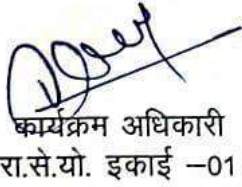 कार्यक्रम अधिकारी
रा.से.यो. इकाई –01